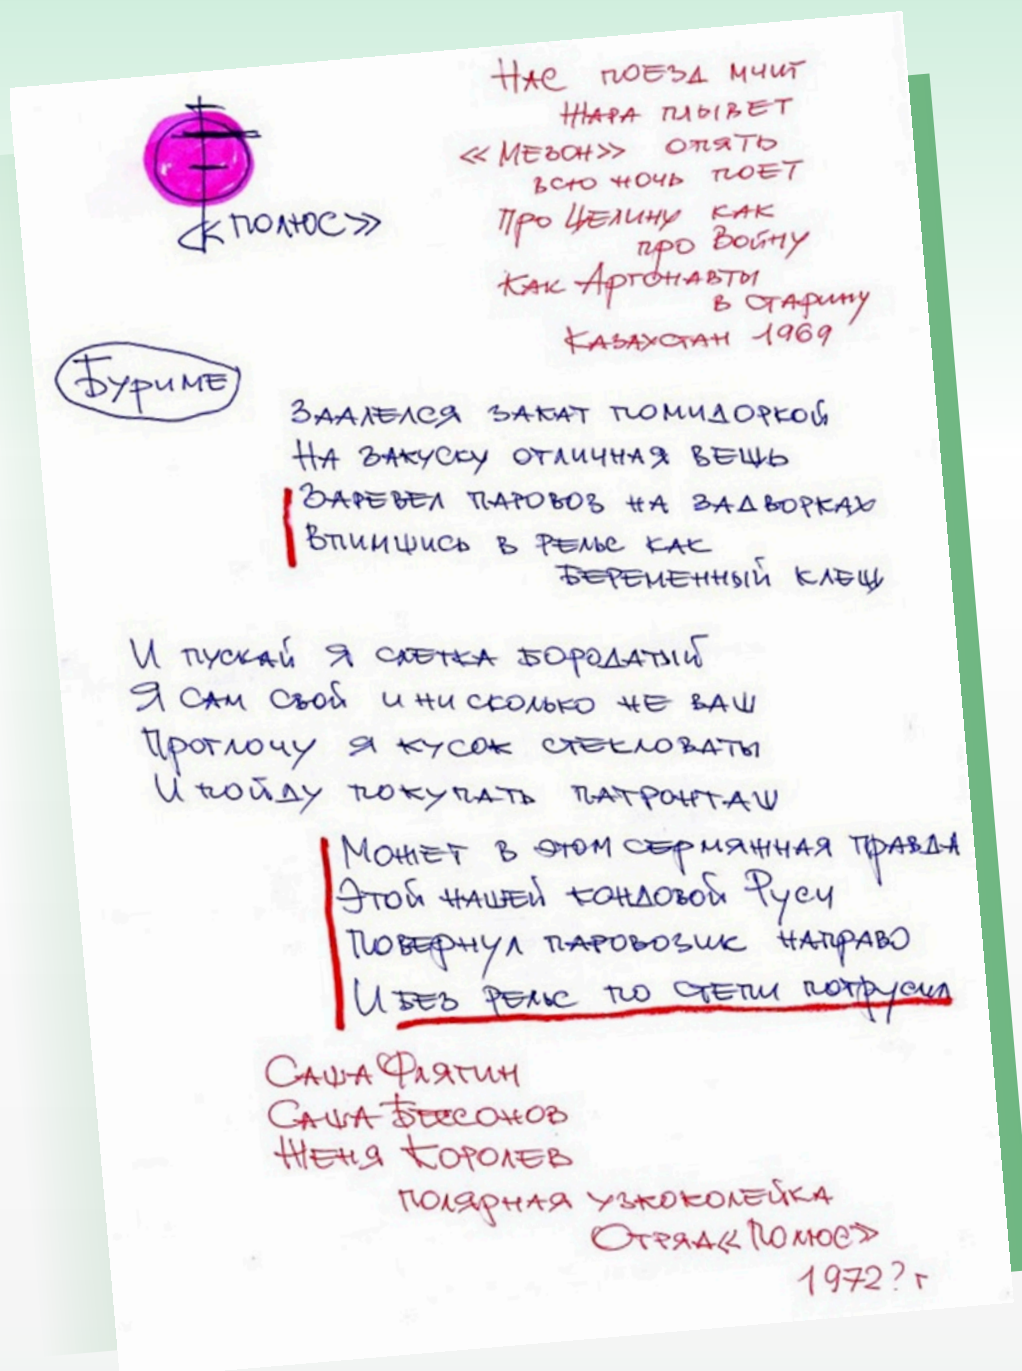 «ПОЛЮС»
НАС ПОЕЗД МЧИТ
ЖАРА ПЛЫВЕТ
«МЕЗОН» ОПЯТЬ
ВСЮ НОЧЬ ПОЕТ
ПРО ЦЕЛИНУ КАК
ПРО ВОЙНУ
КАК АРГОНАВТЫ
В СТАРИНУ
КАЗАХСТАН 1969
БУРИМЕ
ЗААЛЕЛСЯ ЗАКАТ ПОМИДОРКОЙ
НА ЗАКУСКУ ОТЛИЧНАЯ ВЕЩЬ
ЗАРЕВЕЛ ПАРОВОЗ НА ЗАДВОРКАХ
ВПИМШИСЬ В РЕЛЬС КАК
БЕРЕМЕННЫЙ КЛЕЩ
И ПУСКАЙ Я СЛЕГКА БОРОДАТЫЙ
Я САМ СВОЙ И НИСКОЛЬКО НЕ ВАШ
ПРОГЛОЧУ Я КУСОК СТЕКЛОВАТЫ
И ПОЙДУ ПОКУПАТЬ ПАТРОНТАШ
МОЖЕТ В ЭТОМ СЕРМЯЖНАЯ ПРАВДА
ЭТОЙ НАШЕЙ КОНДОВОЙ РУСИ
ПОВЕРНУЛ ПАРОВОЗИК НАПРАВО
И БЕЗ РЕЛЬС ПО СТЕПИ ПОТРУСИЛ
САША ФЛЯГИН
САША БЕССОНОВ
ЖЕНЯ КОРОЛЕВ
ПОЛЯРНАЯ УЗКОКОЛЕЙКА
ОТРЯД «ПОЛЮС»
1972? г